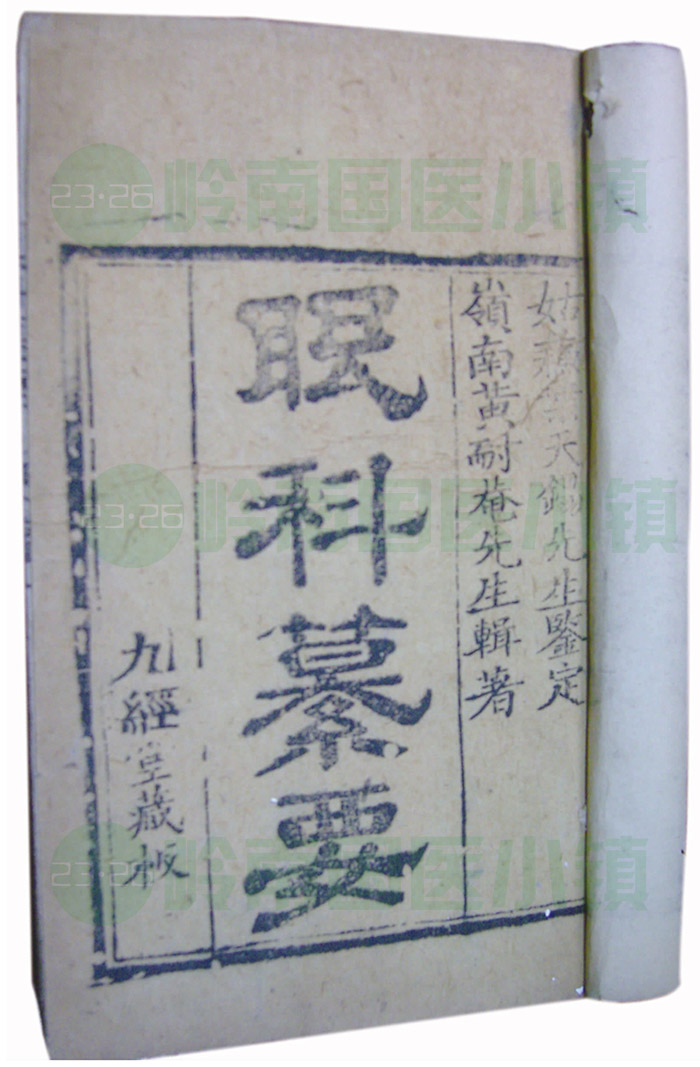 姑蘓葉天錫先生鑒定
嶺南黃耐菴先生輯著
眼科纂要
九經堂藏板
23·26 岭南国医小镇
23·26 岭南国医小镇
23·26 岭南国医小镇